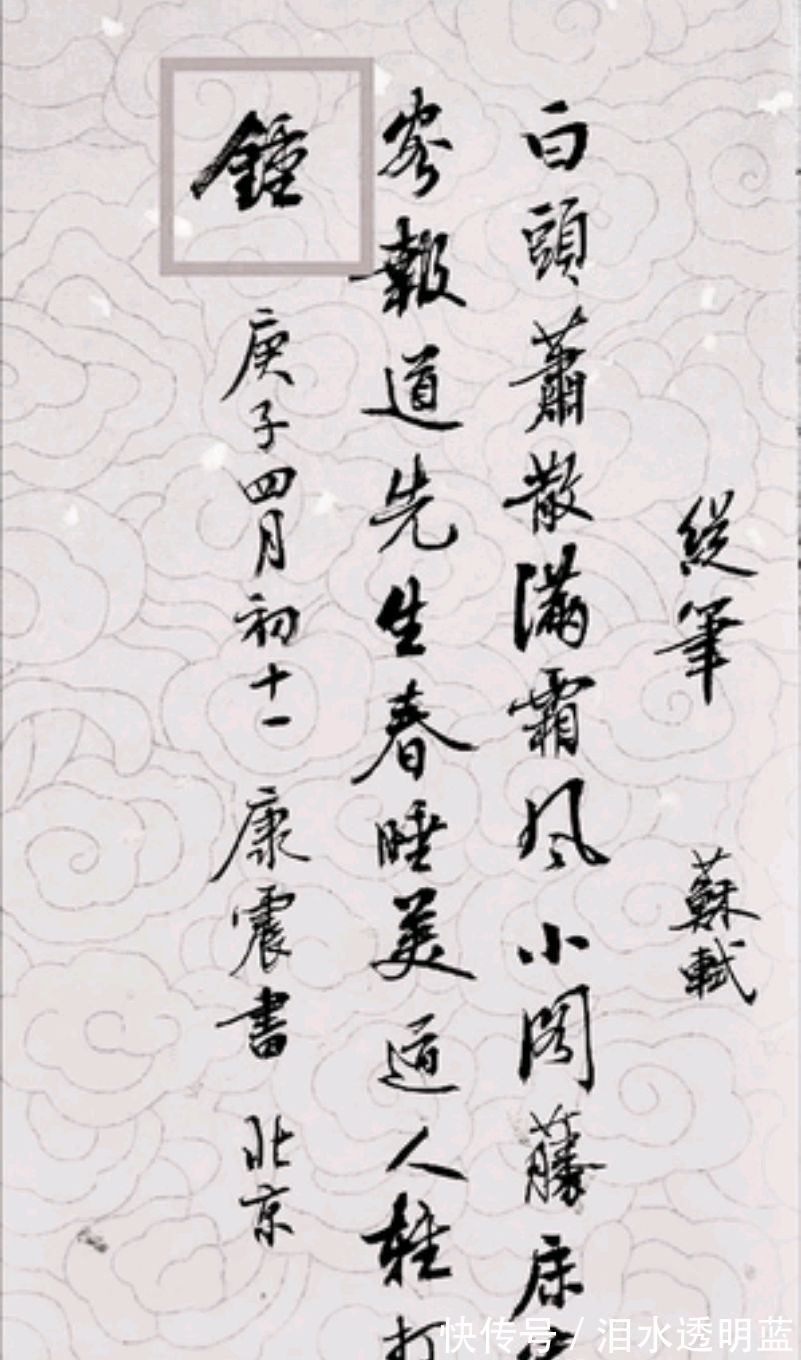 縱筆 蘇軾
白頭蕭散滿霜風小閣藤床
容報道先生春睡美道人輕打
鍾 庚子四月初十一 康震書 北京
快传号 / 泪水透明蓝